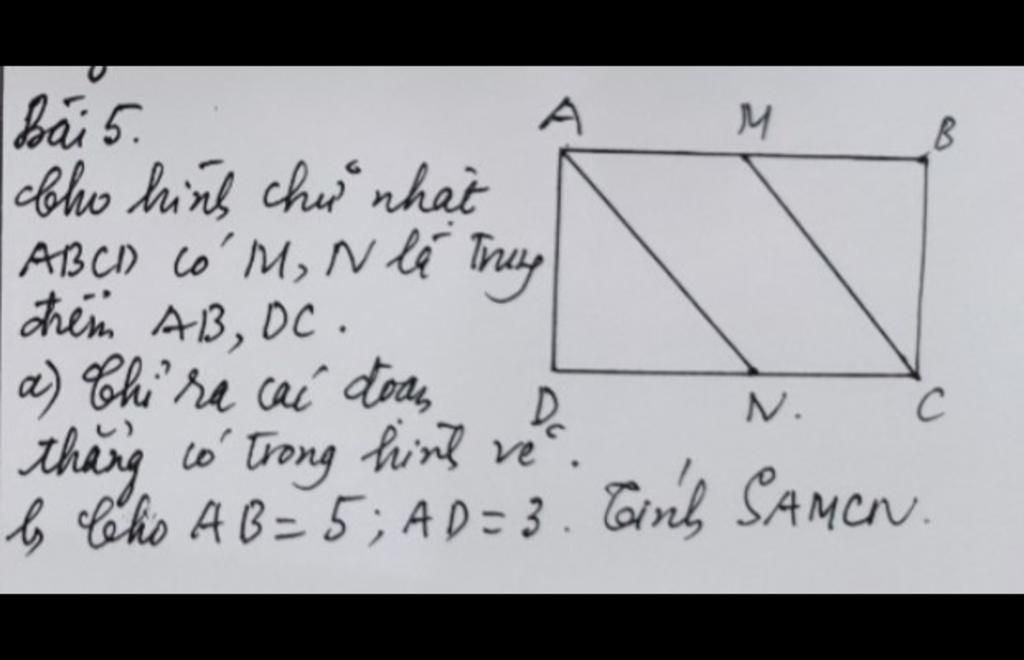 Bài 5.
Cho hình chữ nhật
ABCD có M, N là trung
điểm AB, DC.
a) Chỉ ra các đoạn
thẳng có trong hình vẽ.
b, Cho AB = 5; AD = 3. Tính SAMCN.
A M B
D N. C